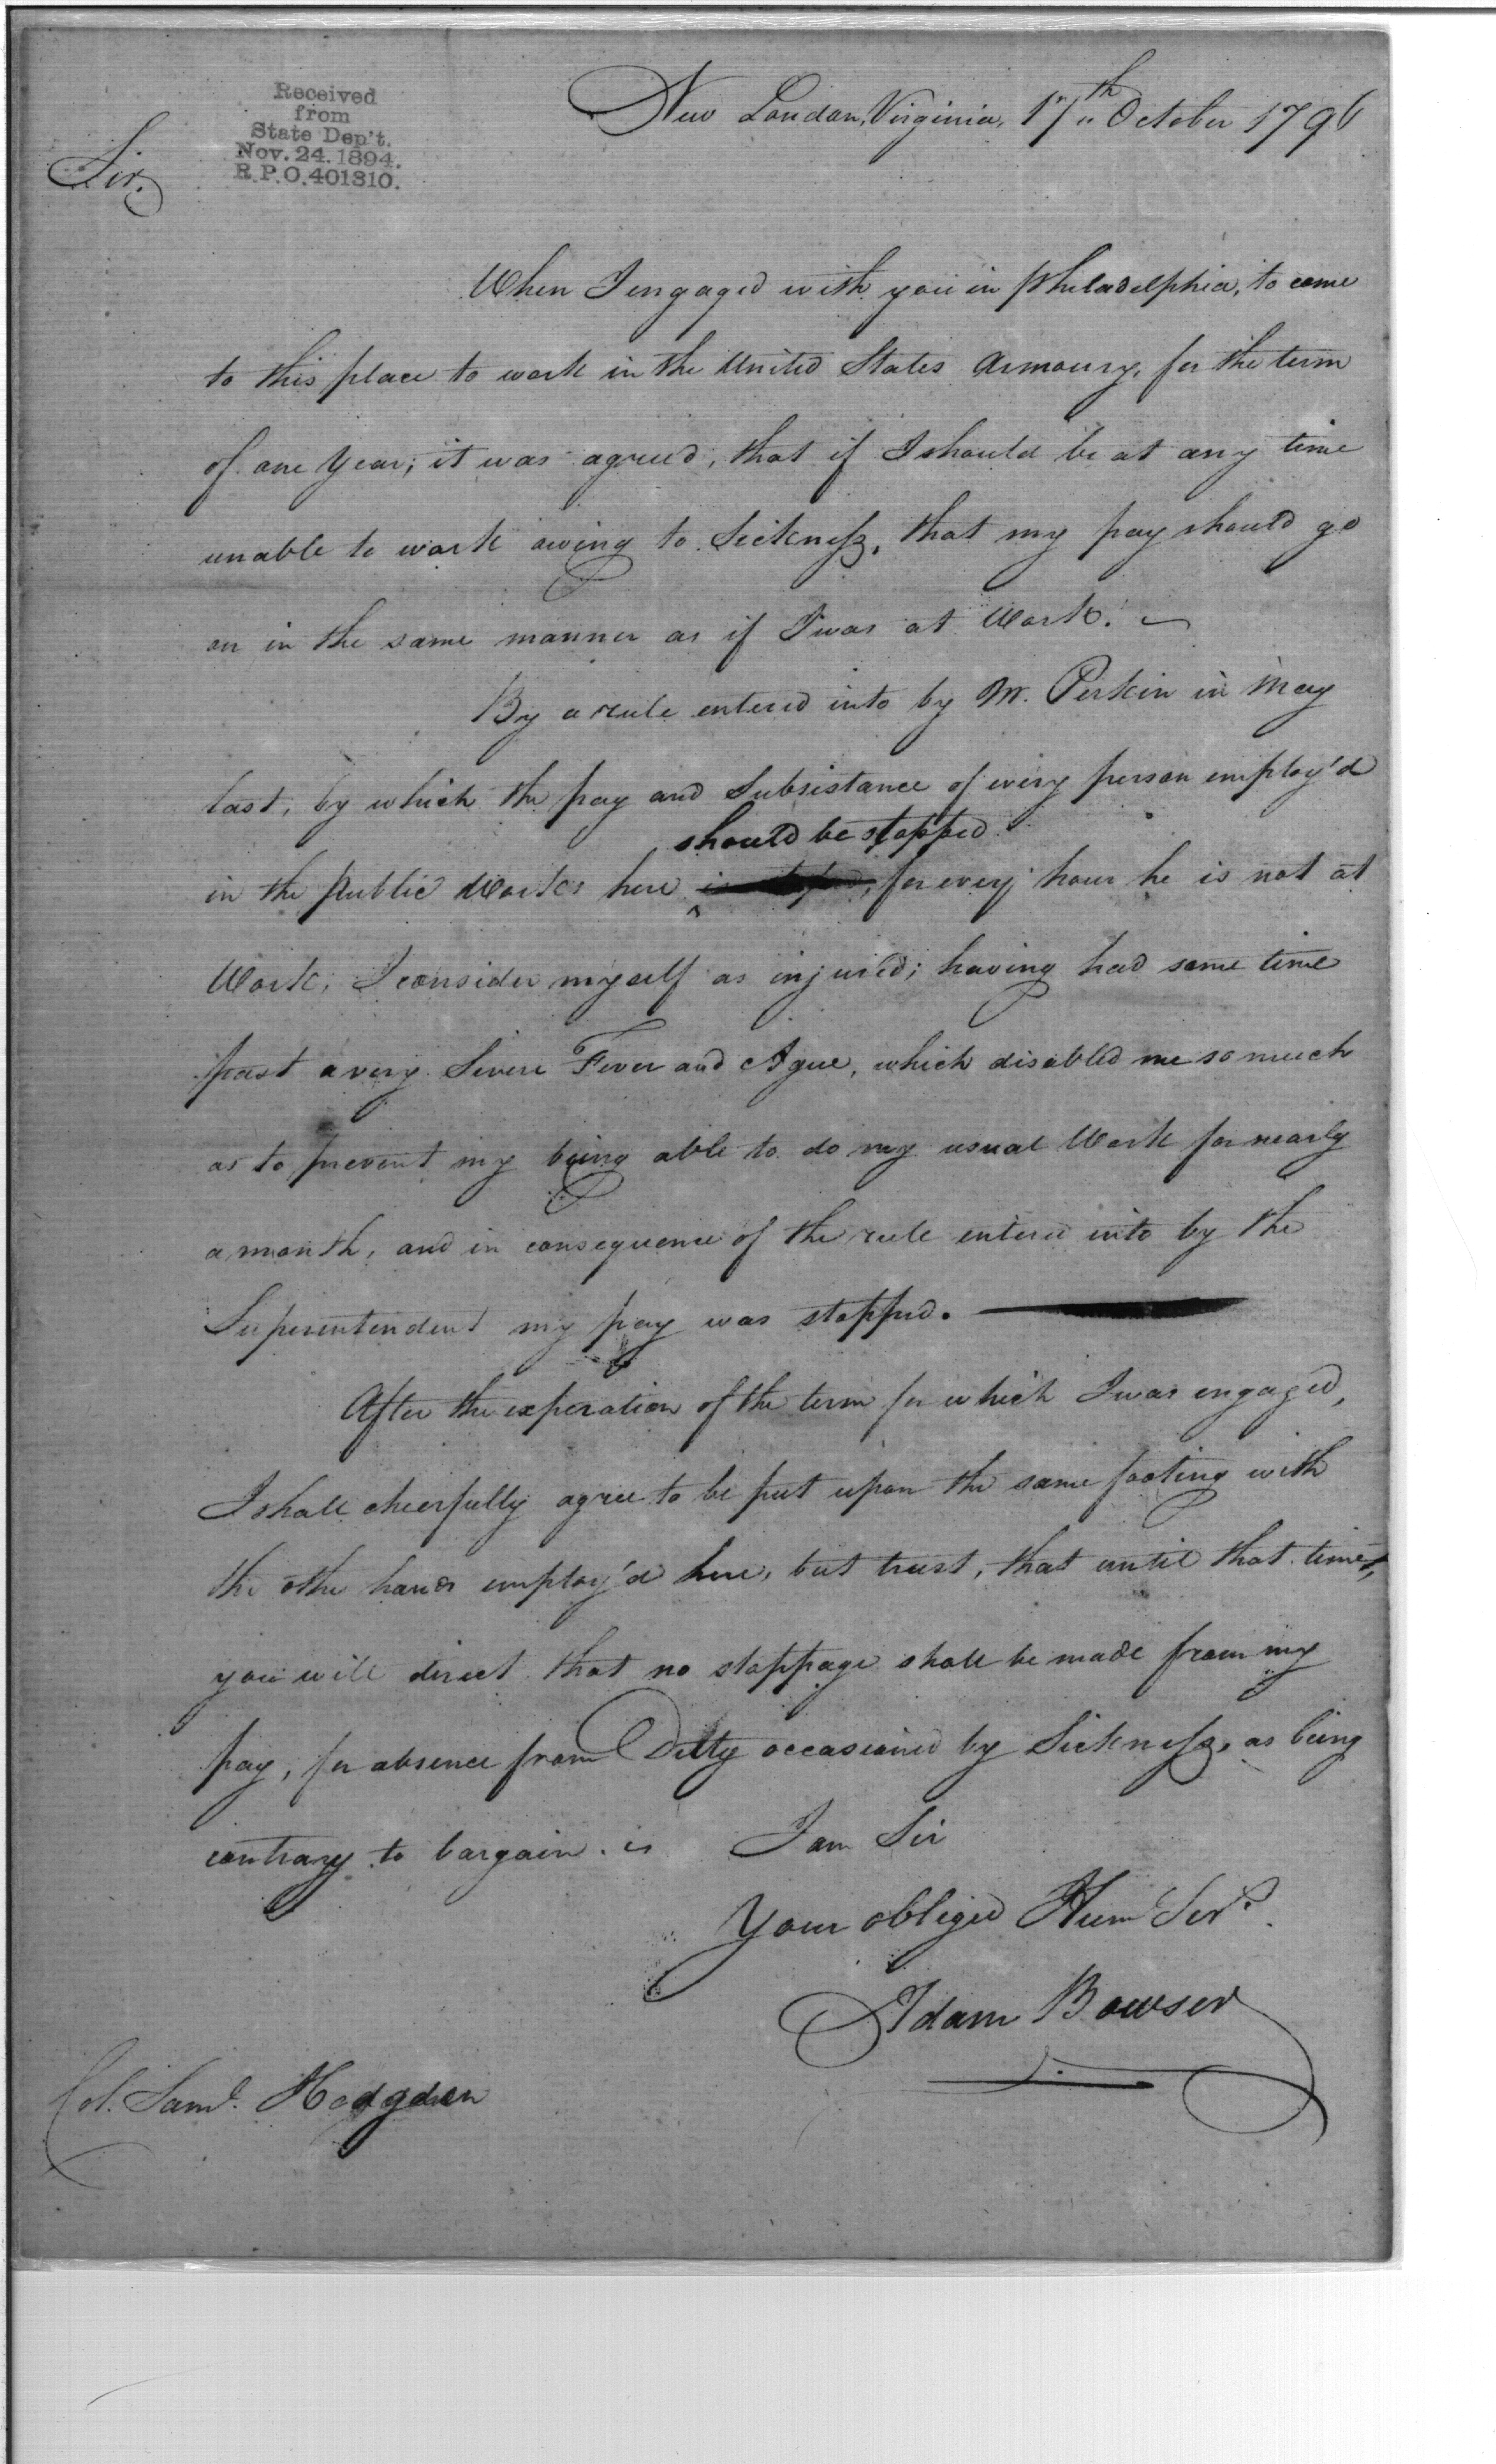 Received
from
State Dep't.
Nov. 24. 1894.
R.P.O. 401310.
New London, Virginia, 17th October 1796
Sir.
When I engaged with you in Philadelphia, to come
to this place to work in the United States Armoury, for the term
of one Year; it was agreed, that if I should be at any time
unable to work owing to Sickness, that my pay should go
on in the same manner as if I was at Work.
By a rule entered into by Mr. Perkin in May
last, by which the pay and Subsistance of every person employ'd
should be stopped
in the Public Works here for every hour he is not at
Work, I consider myself as injured; having had some time
past a very Severe Fever and Ague, which disabled me so much
as to prevent my being able to do my usual Work for nearly
a month, and in consequence of the rule entered into by the
Superintendent my pay was stopped.
After the experation of the term for which I was engaged,
I shall cheerfully agree to be put upon the same footing with
the other hands employ'd here, but trust, that until that time,
you will direct that no stoppage shall be made from my
pay, for absence from Duty occasioned by Sickness, as being
contrary to bargain. I am Sir
Your obliged Hum Servt.
Adam Bowser
Col. Saml. Hodgdon